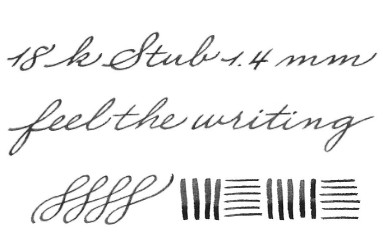 18 k Stub 1.4 mm
feel the writing